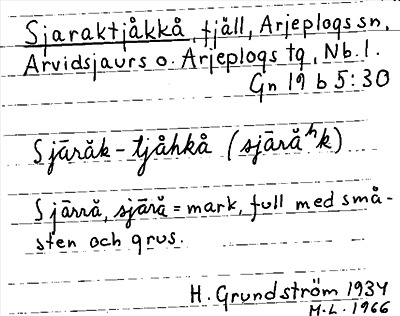 Sjaraktjåkkå, fjäll, Arjeplogs sn,
Arvidsjaurs o. Arjeplogs tg, Nb. l.
Gn 19 b 5:30
Sjārăk-tjåhkå (sjārăʰk)
Sjārră, sjāră = mark, full med små-
sten och grus.
H. Grundström 1934
M.L. 1966